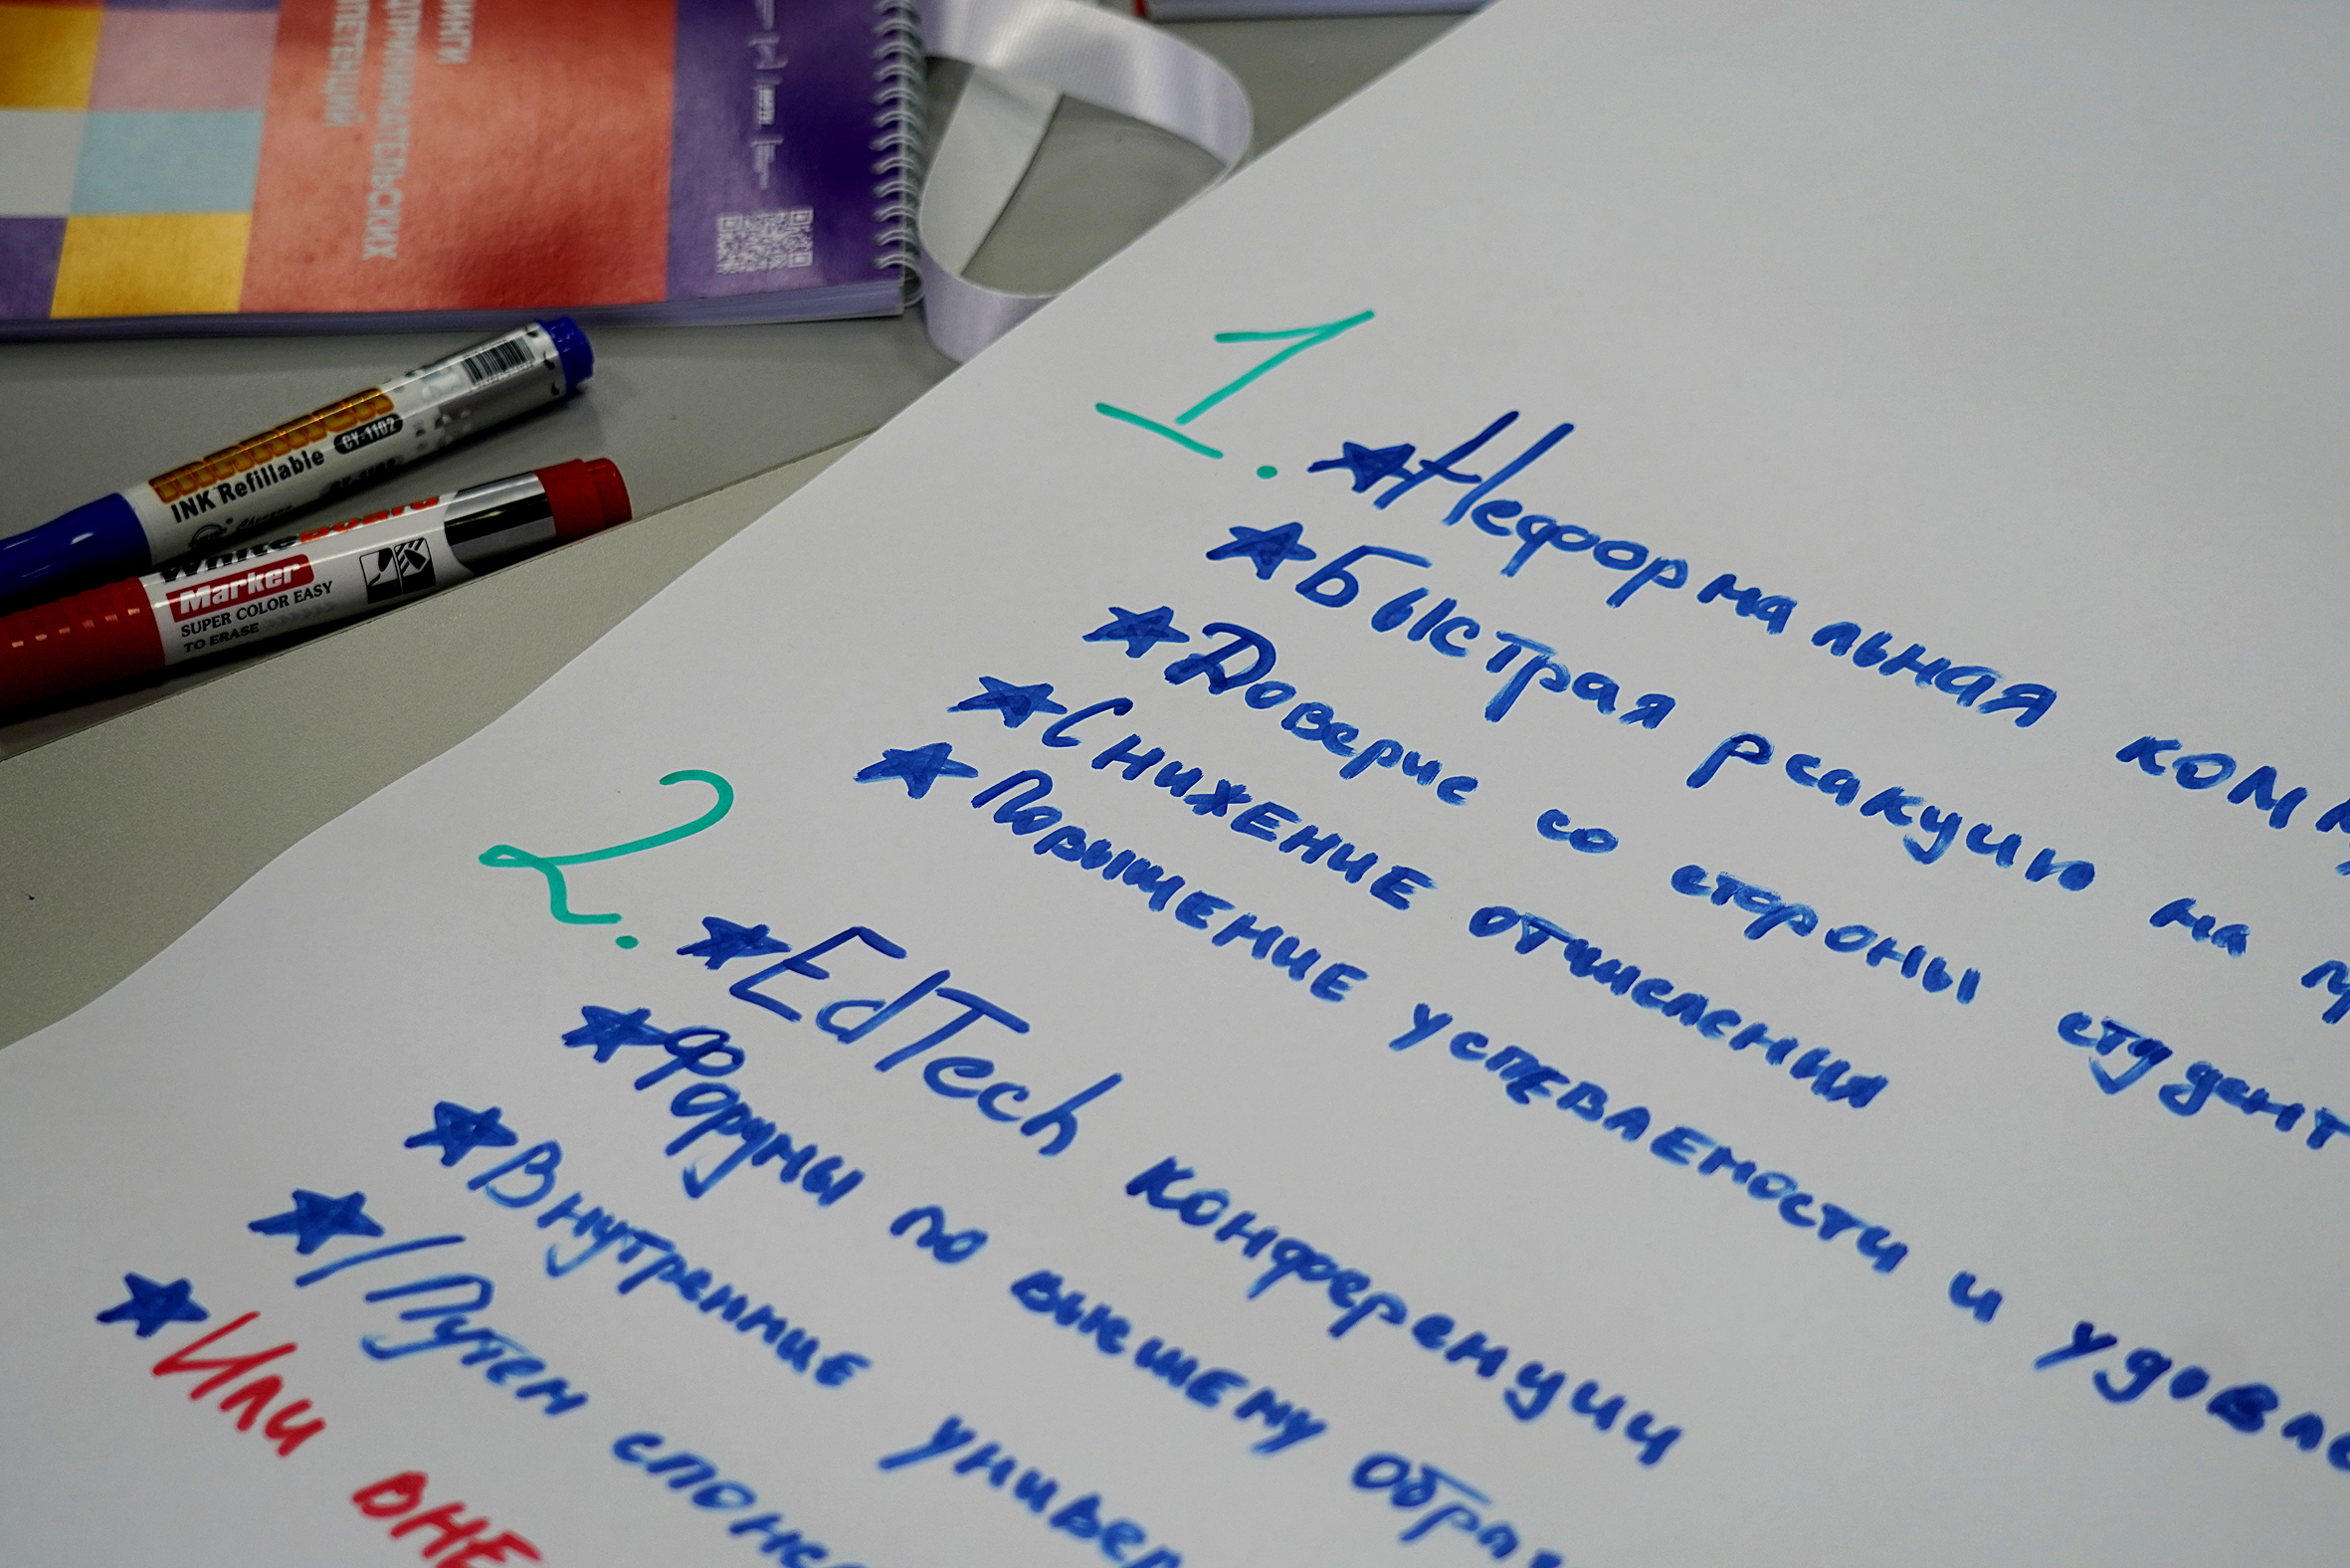 ПРИНИМАТЕЛЬСКИХ
INK Refillable
CY-1102
Whiteboard
Marker
SUPER COLOR EASY
TO ERASE
1.
Неформальная комм
Быстрая реакцию на
Доверие со стороны студент
Снижение отчисления
Повышение успеваемости и удовле
2.
EdTech конференции
Форумы по высшему образ
Внутренние универ
/Путем спонс
Или